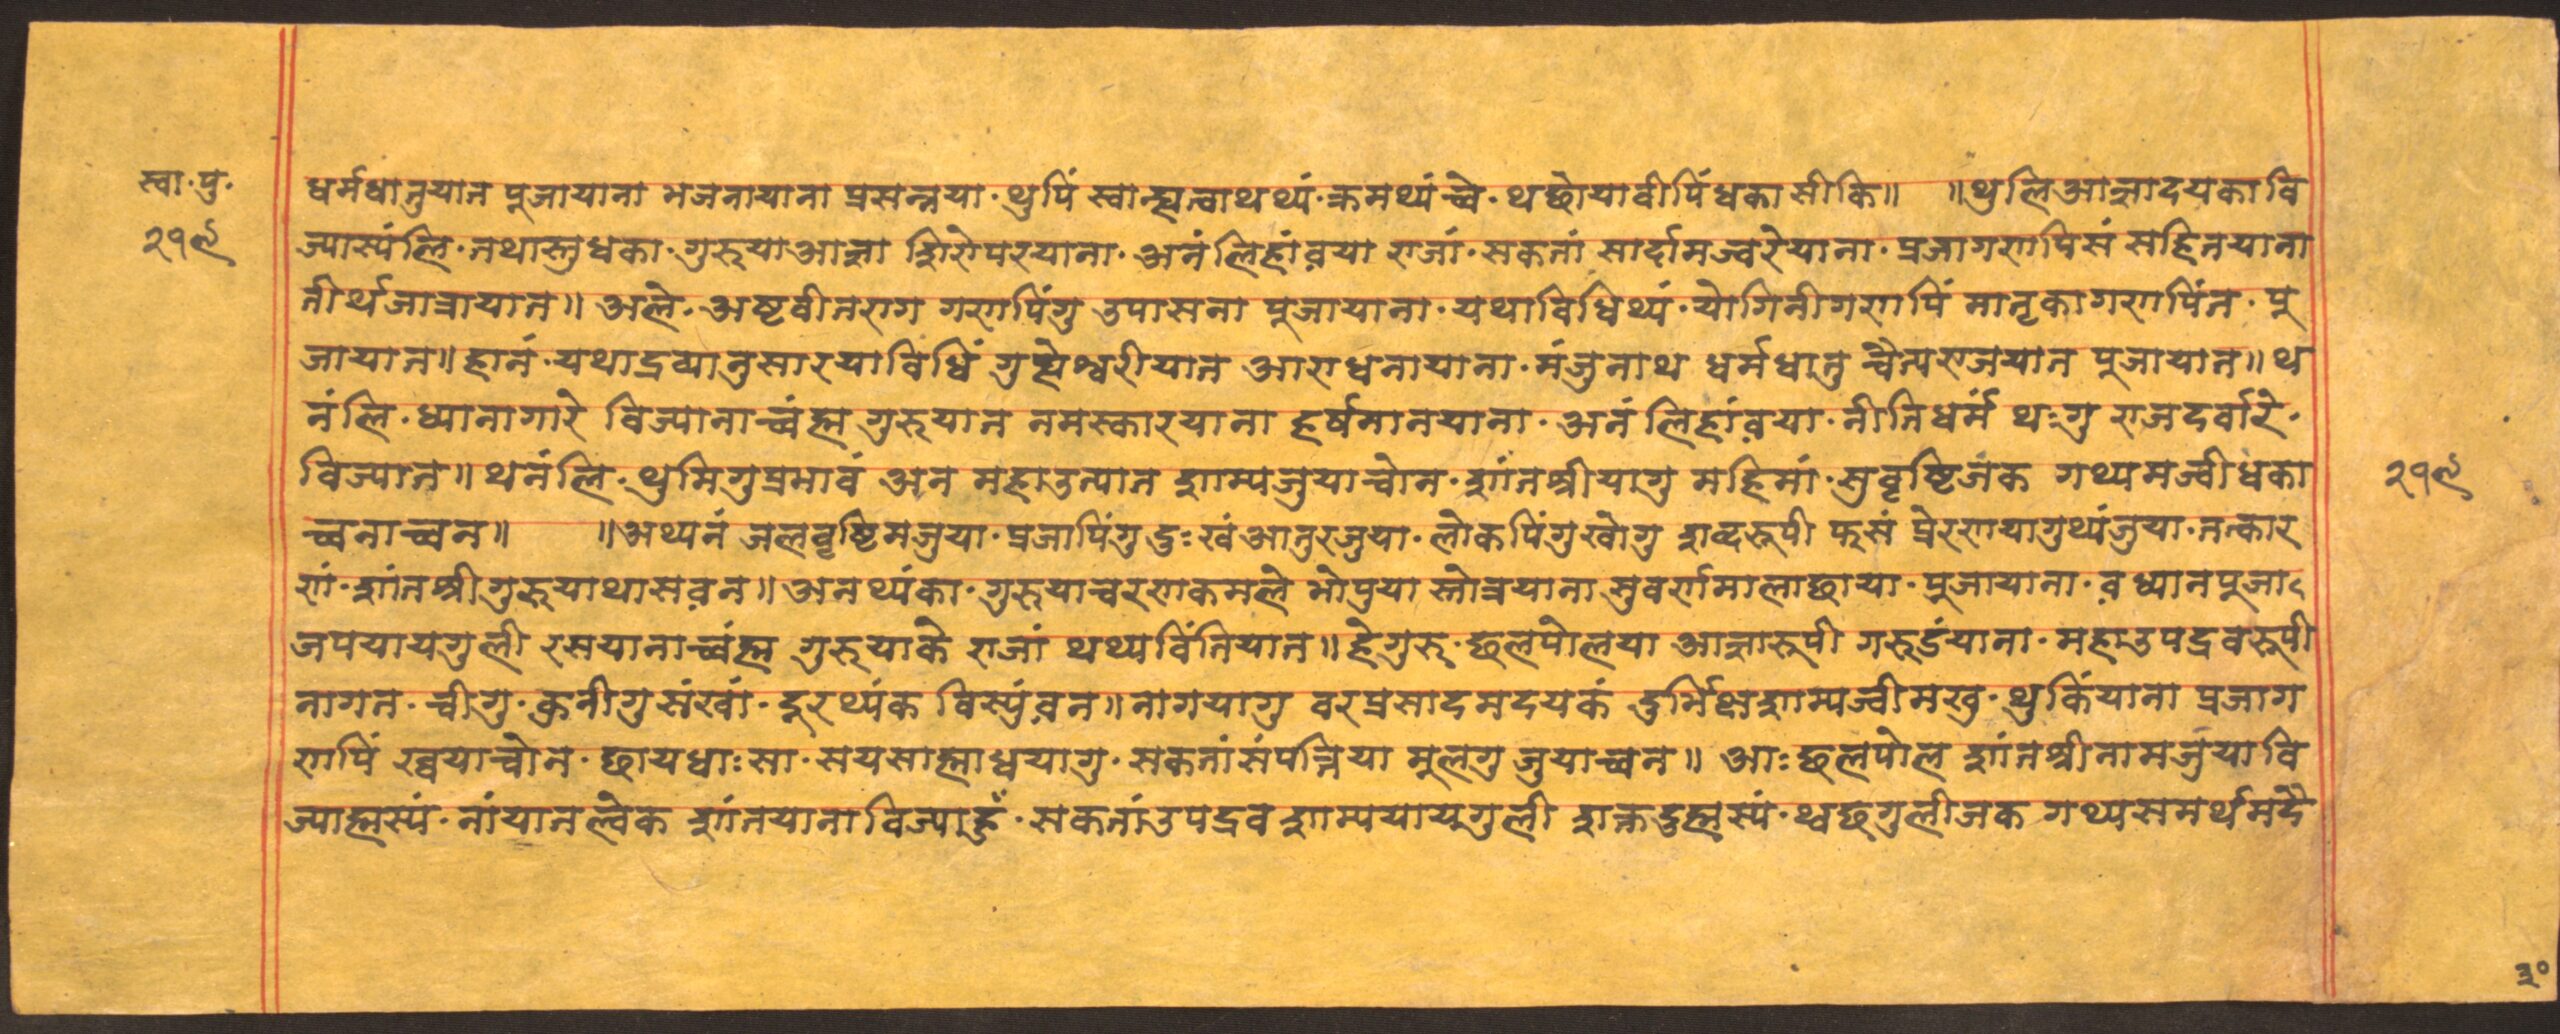 स्वा॰पु॰
२१९
धर्मधातुयात पूजायाना भजनायाना प्रसन्नया॰ थुपिं स्वान्ह्यत्वाथथ्यं॰ क्रमथ्यंच्वे॰ थछोयावीपिं धका सीकि॥ ॥थुलि आज्ञादयकावि
ज्यास्यंलि॰ तथास्तुधका॰ गुरुया आज्ञा शिरोपरयाना॰ अनंलिहांव़या राजां॰ सकतां सार्दामज्वरेयाना॰ प्रजागणपिसं सहितयाना
तीर्थजात्रायात॥ अले॰ अष्टवीतराग गणपिंगु उपासना पूजायाना॰ यथाविधिथ्यं॰ योगिनीगणपिं मातृकागणपिंत॰ पू
जायात॥ हानं॰ यथाद्रव्यानुसारयाविधिं गुह्येश्वरीयात आराधनायाना॰ मंजुनाथ धर्मधातु चैत्यराजयात पूजायात॥ थ
नंलि॰ ध्यानागारे विज्यानाच्वंह्म गुरुयात नमस्कारयाना हर्षमानयाना॰ अनं लिहांव़या॰ नीतिधर्मं थःगु राजदर्वारे॰
विज्यात॥ थनंलि॰ थुमिगुप्रभावं अन महाउत्पात शाम्यजुयाच्वोन॰ शांतश्रीयागु महिमां॰ सुवृष्टिजक गथ्यमज्वीधका
च्वनाच्वन॥ ॥अथ्यनं जलवृष्टिमजुया॰ प्रजापिंगु दुःखं आतुरजुया॰ लोकपिंगु खोगु शब्दरूपी फसं प्रेरणायागुथ्यंजुया॰ तत्कार
णं॰ शांतश्रीगुरुयाथासव़न॥ अनथ्यंका॰ गुरुयाचरणकमले भोपुया स्तोत्रयाना सुवर्णमालाछाया॰ पूजायाना॰ व़ ध्यानपूजा
जपयायगुली रसयानाच्वंह्म गुरुयाके राजां थथ्यविंतियात॥ हेगुरु॰ छलपोलया आज्ञारूपी गरुडंयाना॰ महाउपद्रवरूपी
नागत॰ च्वीगु॰ क्रनीगु संखां॰ दूरथ्यंक विस्युंव़न॥ नागयागु वरप्रसादमदयकं दुर्भिक्षशाम्यज्वीमखु॰ थुकिंयाना प्रजाग
णपिं ख्वयाच्वोन॰ छायधाःसा॰ सयसाह्माध्वयागु॰ सकतांसंपत्तिया मूलगु जुयाच्वन॥ आः छलपोल शांतश्रीनामजुयावि
ज्याह्मस्यं॰ नांयातल्वेक शांतयानाविज्याहुँ॰ सकतांउपद्रव शाम्ययायगुली शक्तदुह्मस्यं॰ थ्वछगुलीजक गथ्यसमर्थमदै
२१९
३०